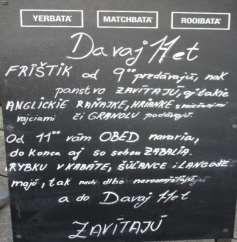 YERBATA' MATCHBATA' ROOIBATA'
Davaj Het
FRIŠTIK od 9⁰⁰ predávajú, nak
panstvo ZAVÍTAJÚ, aj také
ANGLICKIE RAŇAJKE, HRIANKE s
vajciami či GRANOLU podávajú.
Od 11⁰⁰ vám OBED navaria,
do konca aj so sebou ZABALIA.
RYBKU V KABÁTE, ŠÚLANCE i LANGOŠE
majú, tak nech dlho
a do Davaj Het
ZAVÍTAJÚ